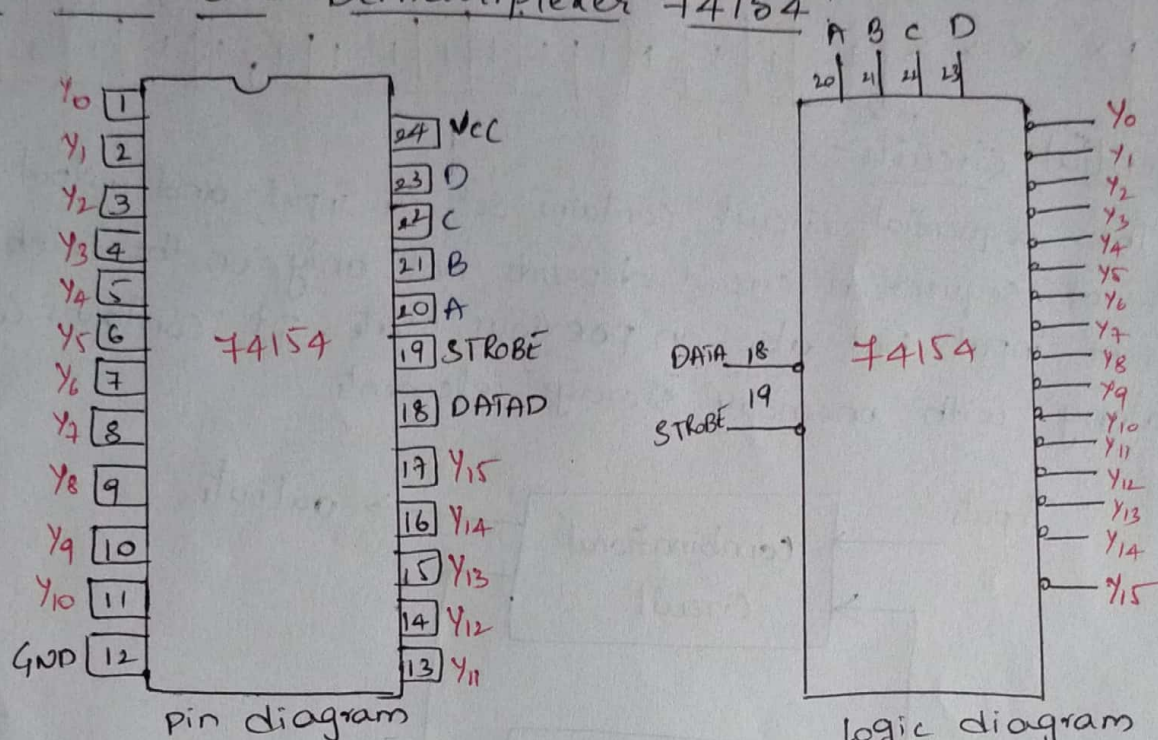 Demultiplexer 74154
Y0 1
Y1 2
Y2 3
Y3 4
Y4 5
Y5 6
Y6 7
Y7 8
Y8 9
Y9 10
Y10 11
GND 12
74154
24 VCC
23 D
22 C
21 B
20 A
19 STROBE
18 DATAD
17 Y15
16 Y14
15 Y13
14 Y12
13 Y11
pin diagram
A B C D
20 21 22 23
DATA 18
19
STROBE
74154
Y0
Y1
Y2
Y3
Y4
Y5
Y6
Y7
Y8
Y9
Y10
Y11
Y12
Y13
Y14
Y15
logic diagram